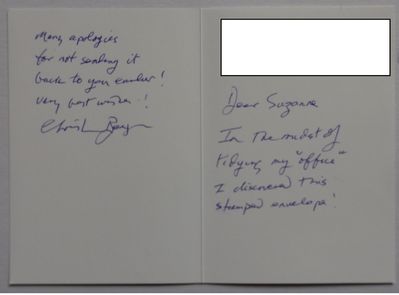 Dear Suzanne
In the midst of
tidying my "office"
I discovered this
stamped envelope!
Many apologies
for not sending it
back to you earlier!
Very best wishes!